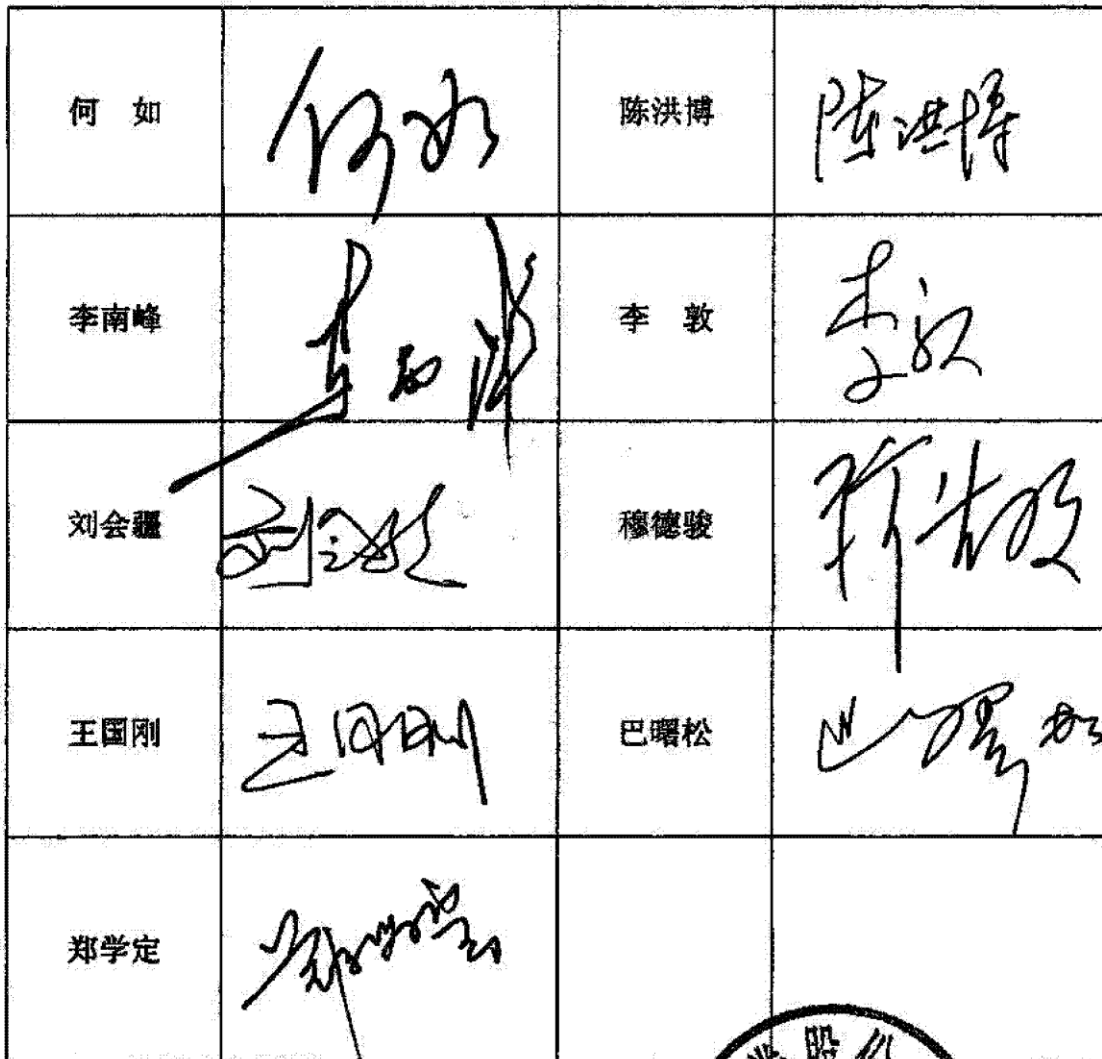 何 如 何如 陈洪博 陈洪博
李南峰 李南峰 李 敦 李敦
刘会疆 刘会疆 穆德骏
王国刚 王国刚 巴曙松 巴曙松
郑学定 郑学定
股份